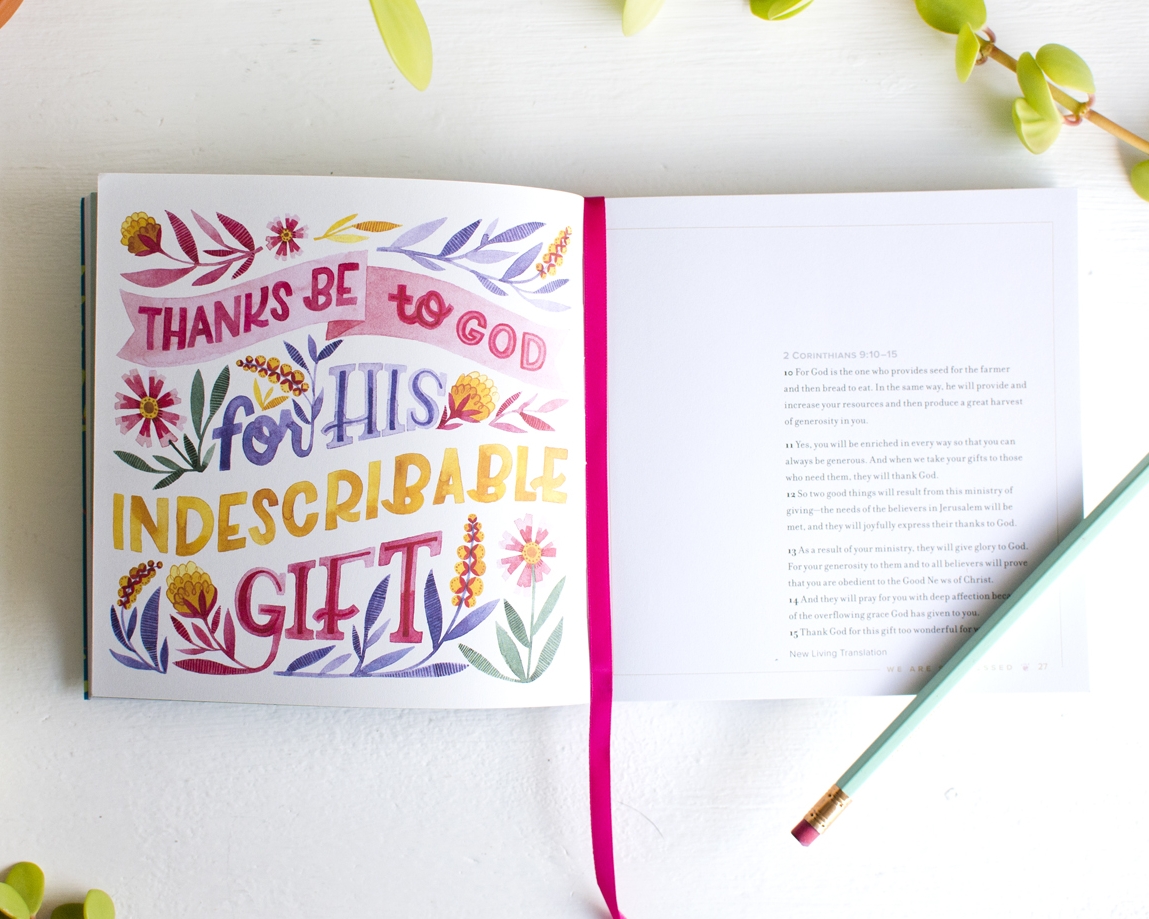 THANKS BE to GOD
for HIS
INDESCRIBABLE
GIFT
2 CORINTHIANS 9:10–15
10 For God is the one who provides seed for the farmer
and then bread to eat. In the same way, he will provide and
increase your resources and then produce a great harvest
of generosity in you.
11 Yes, you will be enriched in every way so that you can
always be generous. And when we take your gifts to those
who need them, they will thank God.
12 So two good things will result from this ministry of
giving—the needs of the believers in Jerusalem will be
met, and they will joyfully express their thanks to God.
13 As a result of your ministry, they will give glory to God.
For your generosity to them and to all believers will prove
that you are obedient to the Good Ne ws of Christ.
14 And they will pray for you with deep affection
of the overflowing grace God has given to you.
15 Thank God for this gift too wonderful for
New Living Translation
WE ARE 27